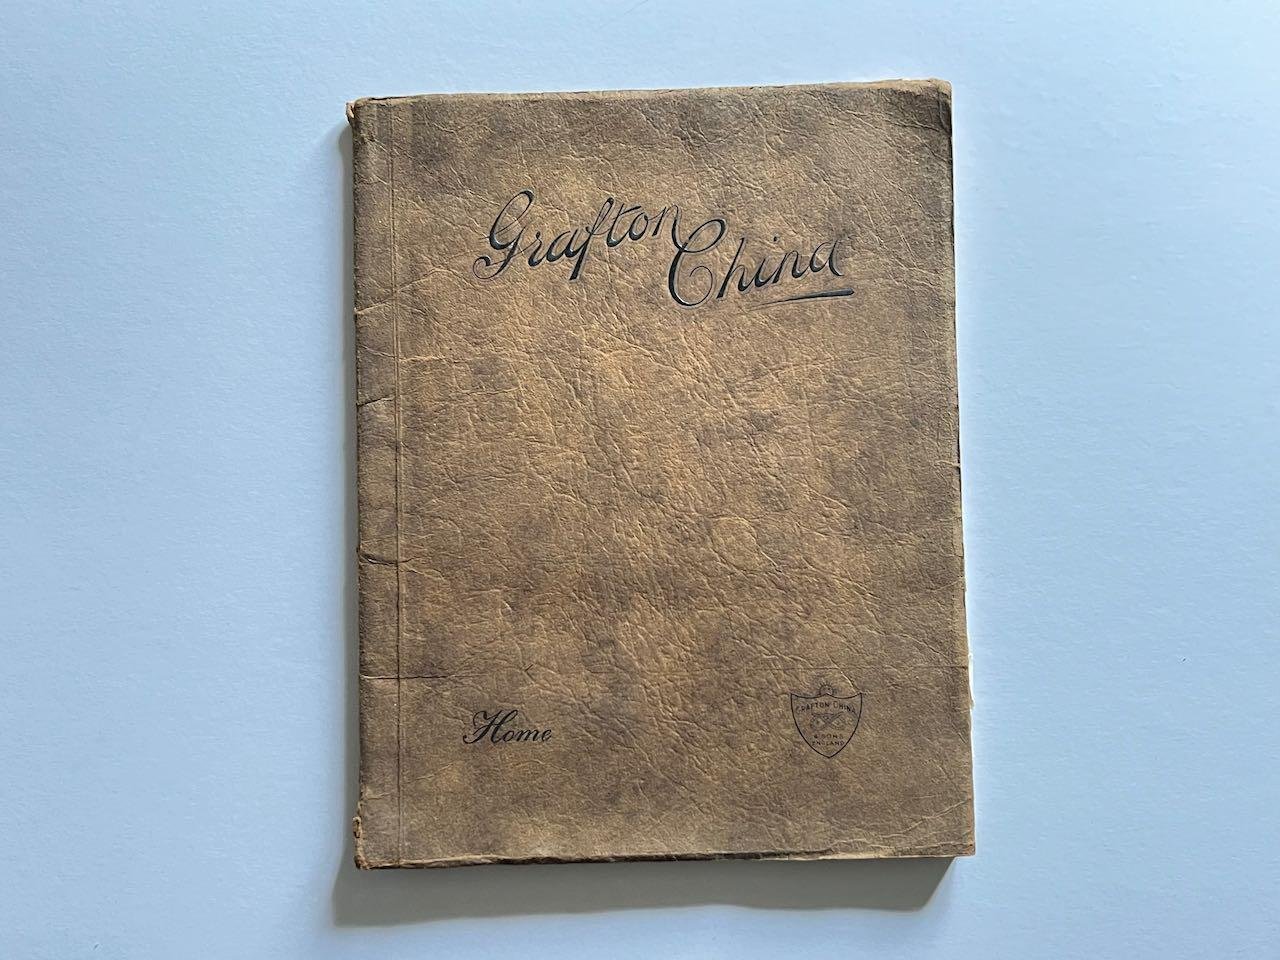 Grafton
China
Home
GRAFTON CHINA
& SONS
ENGLAND